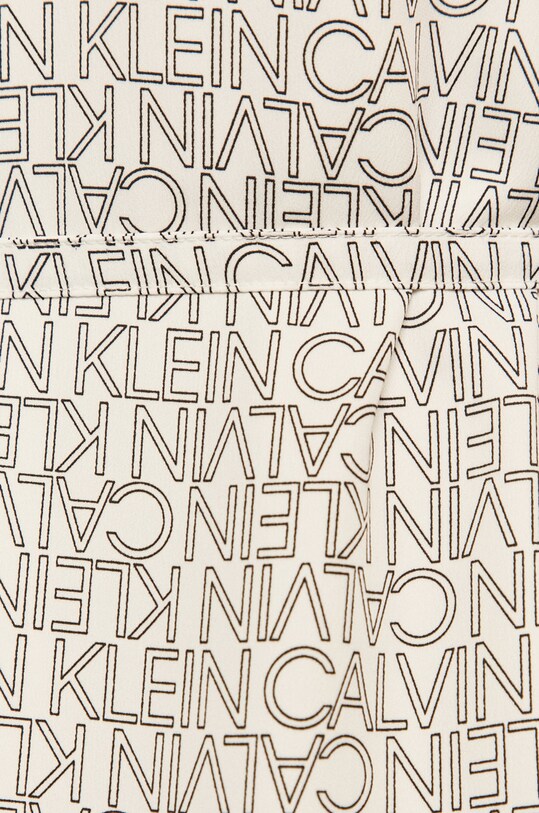 N KLEIN CALVIN
CALVIN KLEIN
CALVIN KLEIN
KLEIN CALVIN K
N KLEIN CALVIN
KLEIN CALVIN KLEIN
CALVIN KLEIN CALVIN
KLEIN CALVIN
N KLEIN CALVIN
KLEIN CALVIN KLEIN